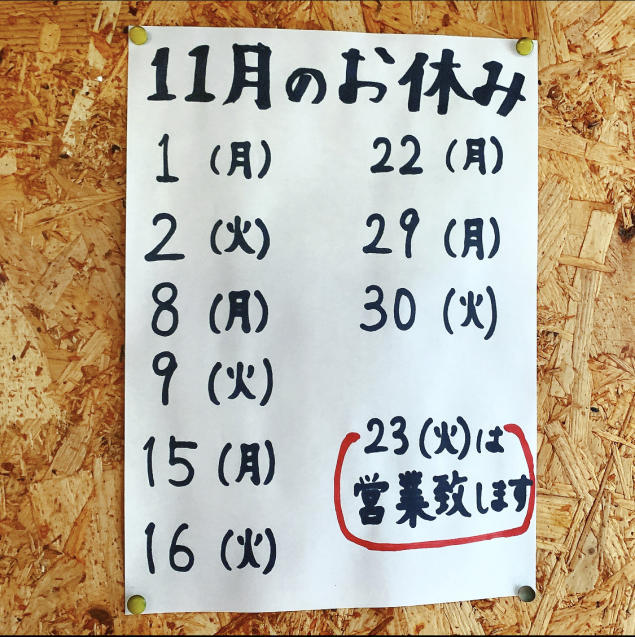 11月のお休み
1 (月)
2 (火)
8 (月)
9 (火)
15 (月)
16 (火)
22 (月)
29 (月)
30 (火)
23 (火)は
営業致します